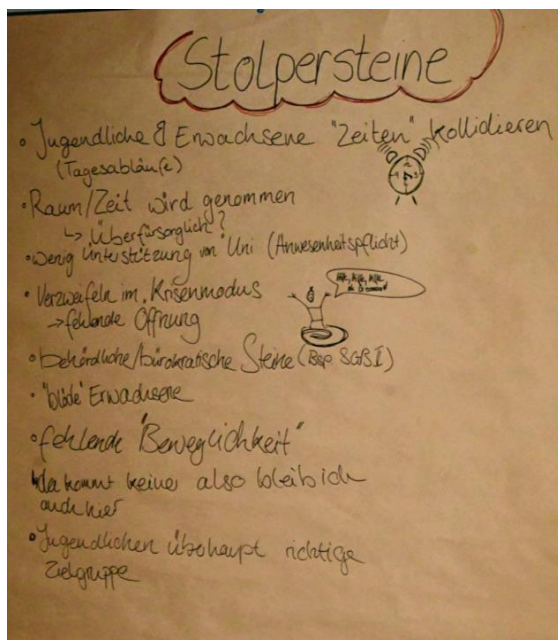 Stolpersteine
• Jugendliche & Erwachsene "Zeiten" kollidieren
(Tagesabläufe)
• Raum/Zeit wird genommen
↳ Überfürsorglich?
• wenig Unterstützung von Uni (Anwesenheitspflicht)
• Verzweifeln im Krisenmodus
→ fehlende Öffnung
• behördliche/bürokratische Steine (Bsp SGB I)
• "blöde" Erwachsene
• fehlende "Beweglichkeit"
da kommt keiner also bleib ich
auch hier
• Jugendlichen überhaupt richtige
Zielgruppe